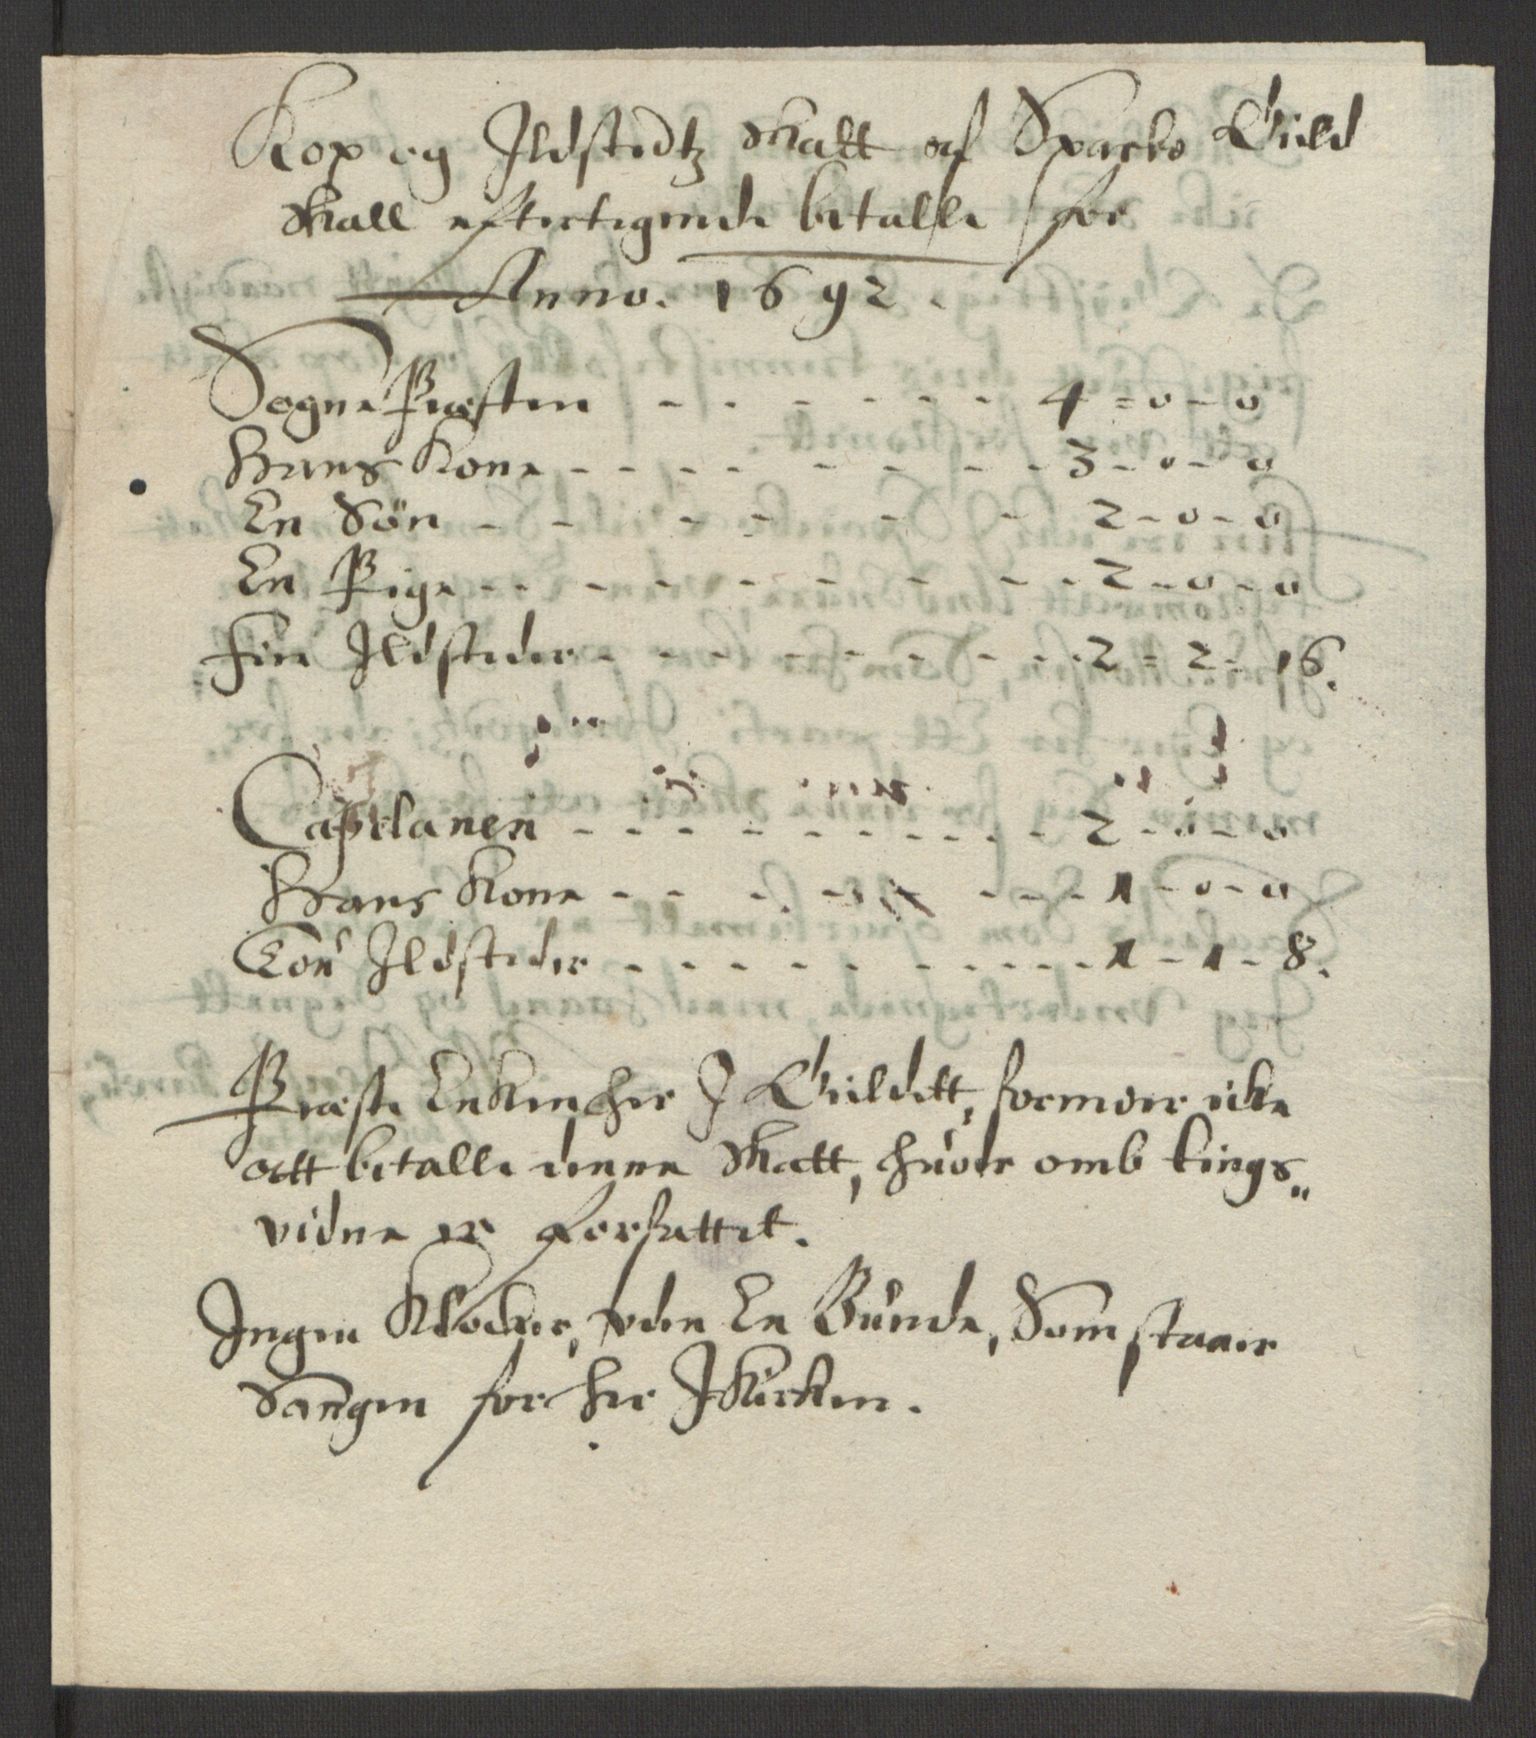 Kop og Ildstedtz Skatt af Sparbo Gield
Skall efftertegnede betalle for
Anno. 1692.
Sogne Præsten - - - - - - - 4 = 0 - 0
Hans Kone - - - - - - - - 3 - 0 - 0
En Søn - - - - - - 2 - 0 - 0
En Pige - - - - - - - - - 2 - 0 - 0
Fire Ildsteder - - - - - - - - 2 = 2 - 16.
Capelanen - - - - - - - - - - 2 - 0 - 0
Hans Kone - - - - - - - - 1 - 0 - 0
Tou Ildsteder - - - - - - - - - - 1 - 1 - 8.
Præste Enken her I Gieldett, formoer icke
att betalle denne Skatt, huor omb tings„
vidne er forfattet.
Ingen Klocker, uden En Bunde, Som staaer
Sangen for her I Kircken.